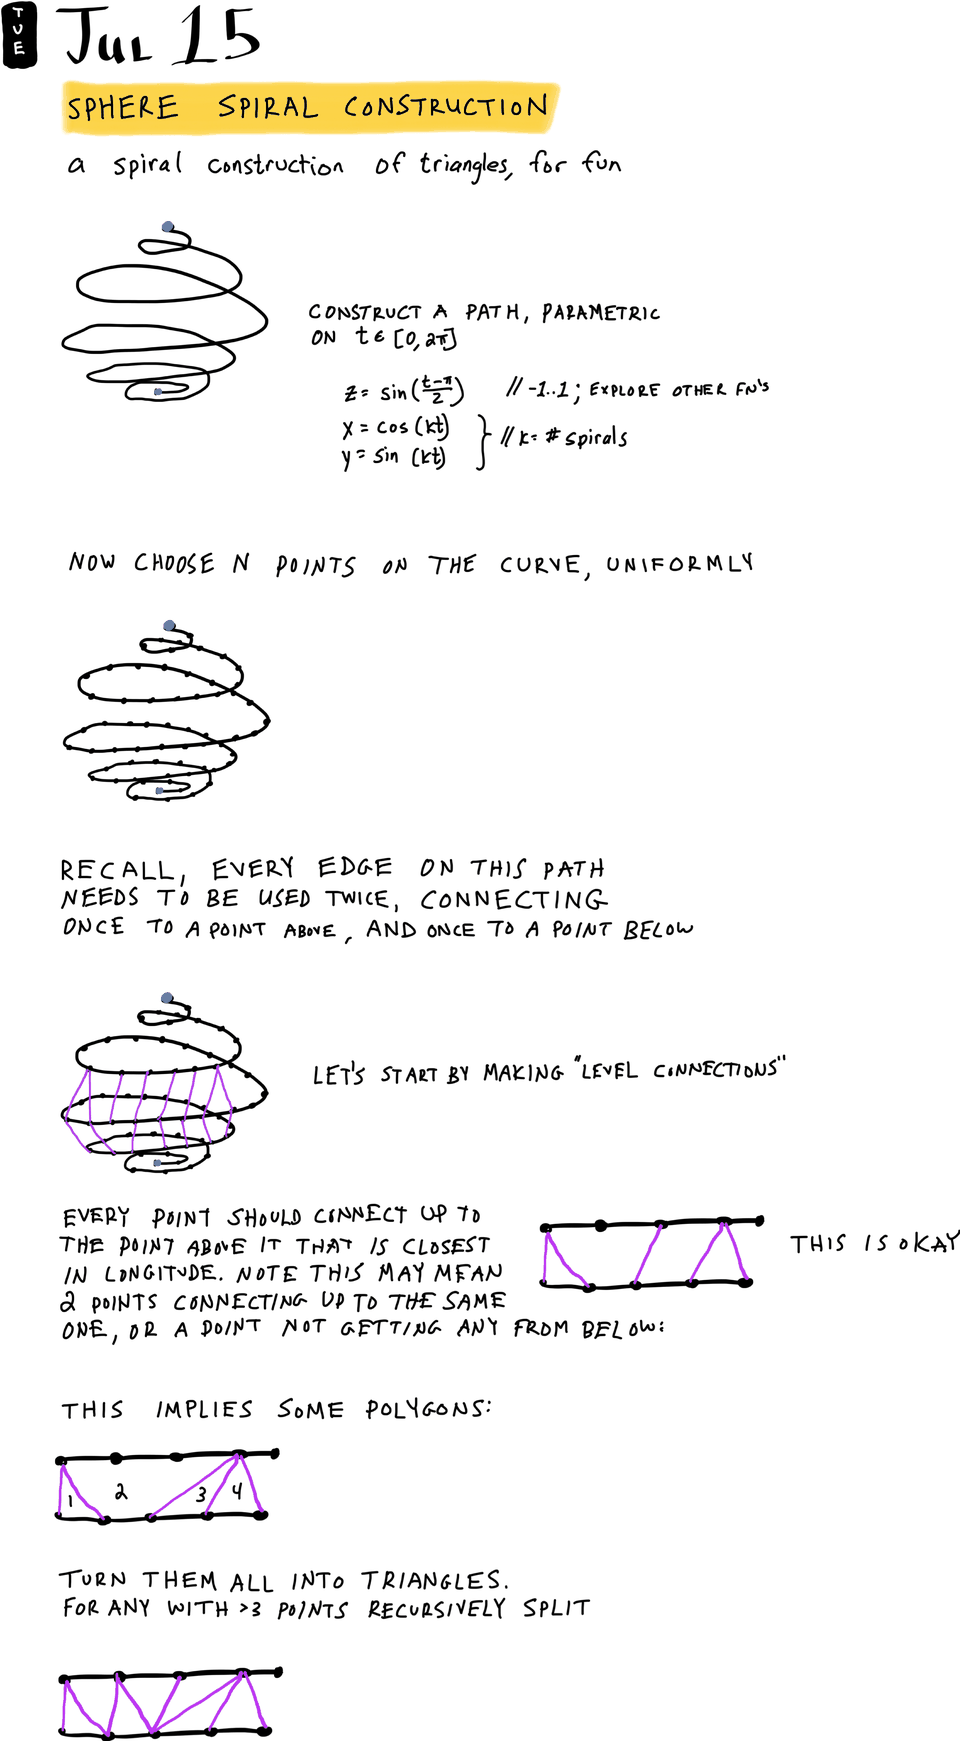 TUE
Jul 15
SPHERE SPIRAL CONSTRUCTION
a spiral construction of triangles, for fun
CONSTRUCT A PATH, PARAMETRIC
ON t ∈ [0, 2π]
z = sin((t-π)/2) // -1..1 ; EXPLORE OTHER FN'S
x = cos (kt)
y = sin (kt)
} // k = # spirals
NOW CHOOSE N POINTS ON THE CURVE, UNIFORMLY
RECALL, EVERY EDGE ON THIS PATH
NEEDS TO BE USED TWICE, CONNECTING
ONCE TO A POINT ABOVE, AND ONCE TO A POINT BELOW
LET'S START BY MAKING "LEVEL CONNECTIONS"
EVERY POINT SHOULD CONNECT UP TO
THE POINT ABOVE IT THAT IS CLOSEST
IN LONGITUDE. NOTE THIS MAY MEAN
2 POINTS CONNECTING UP TO THE SAME
ONE, OR A POINT NOT GETTING ANY FROM BELOW:
THIS IS OKAY
THIS IMPLIES SOME POLYGONS:
1 2 3 4
TURN THEM ALL INTO TRIANGLES.
FOR ANY WITH >3 POINTS RECURSIVELY SPLIT